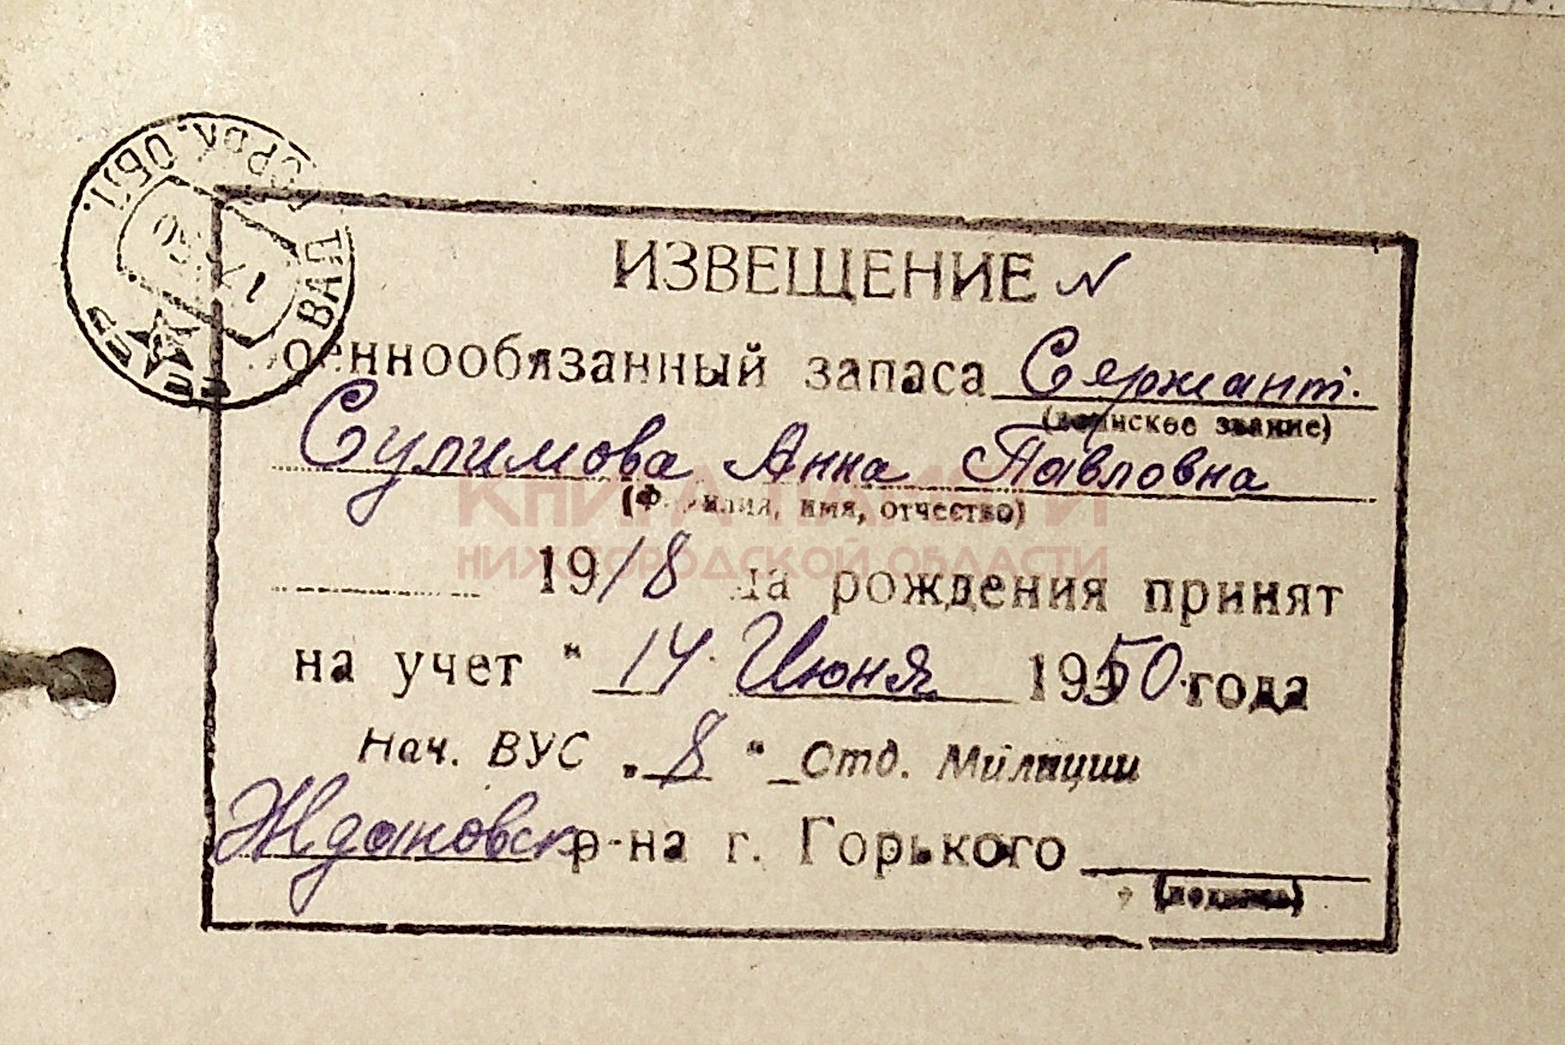 ИЗВЕЩЕНИЕ N
военнообязанный запаса Сержант.
(воинское звание)
Сулимова Анна Павловна
(Фамилия, имя, отчество)
1918 года рождения принят
на учет " 14 Июня 1950 года
Нач. ВУС „ 8 " Отд. Милиции
Ждановск р-на г. Горького
(подпись)
КНИГА ПАМЯТИ
НИЖЕГОРОДСКОЙ ОБЛАСТИ
ГОРЬК. ОБЛ.